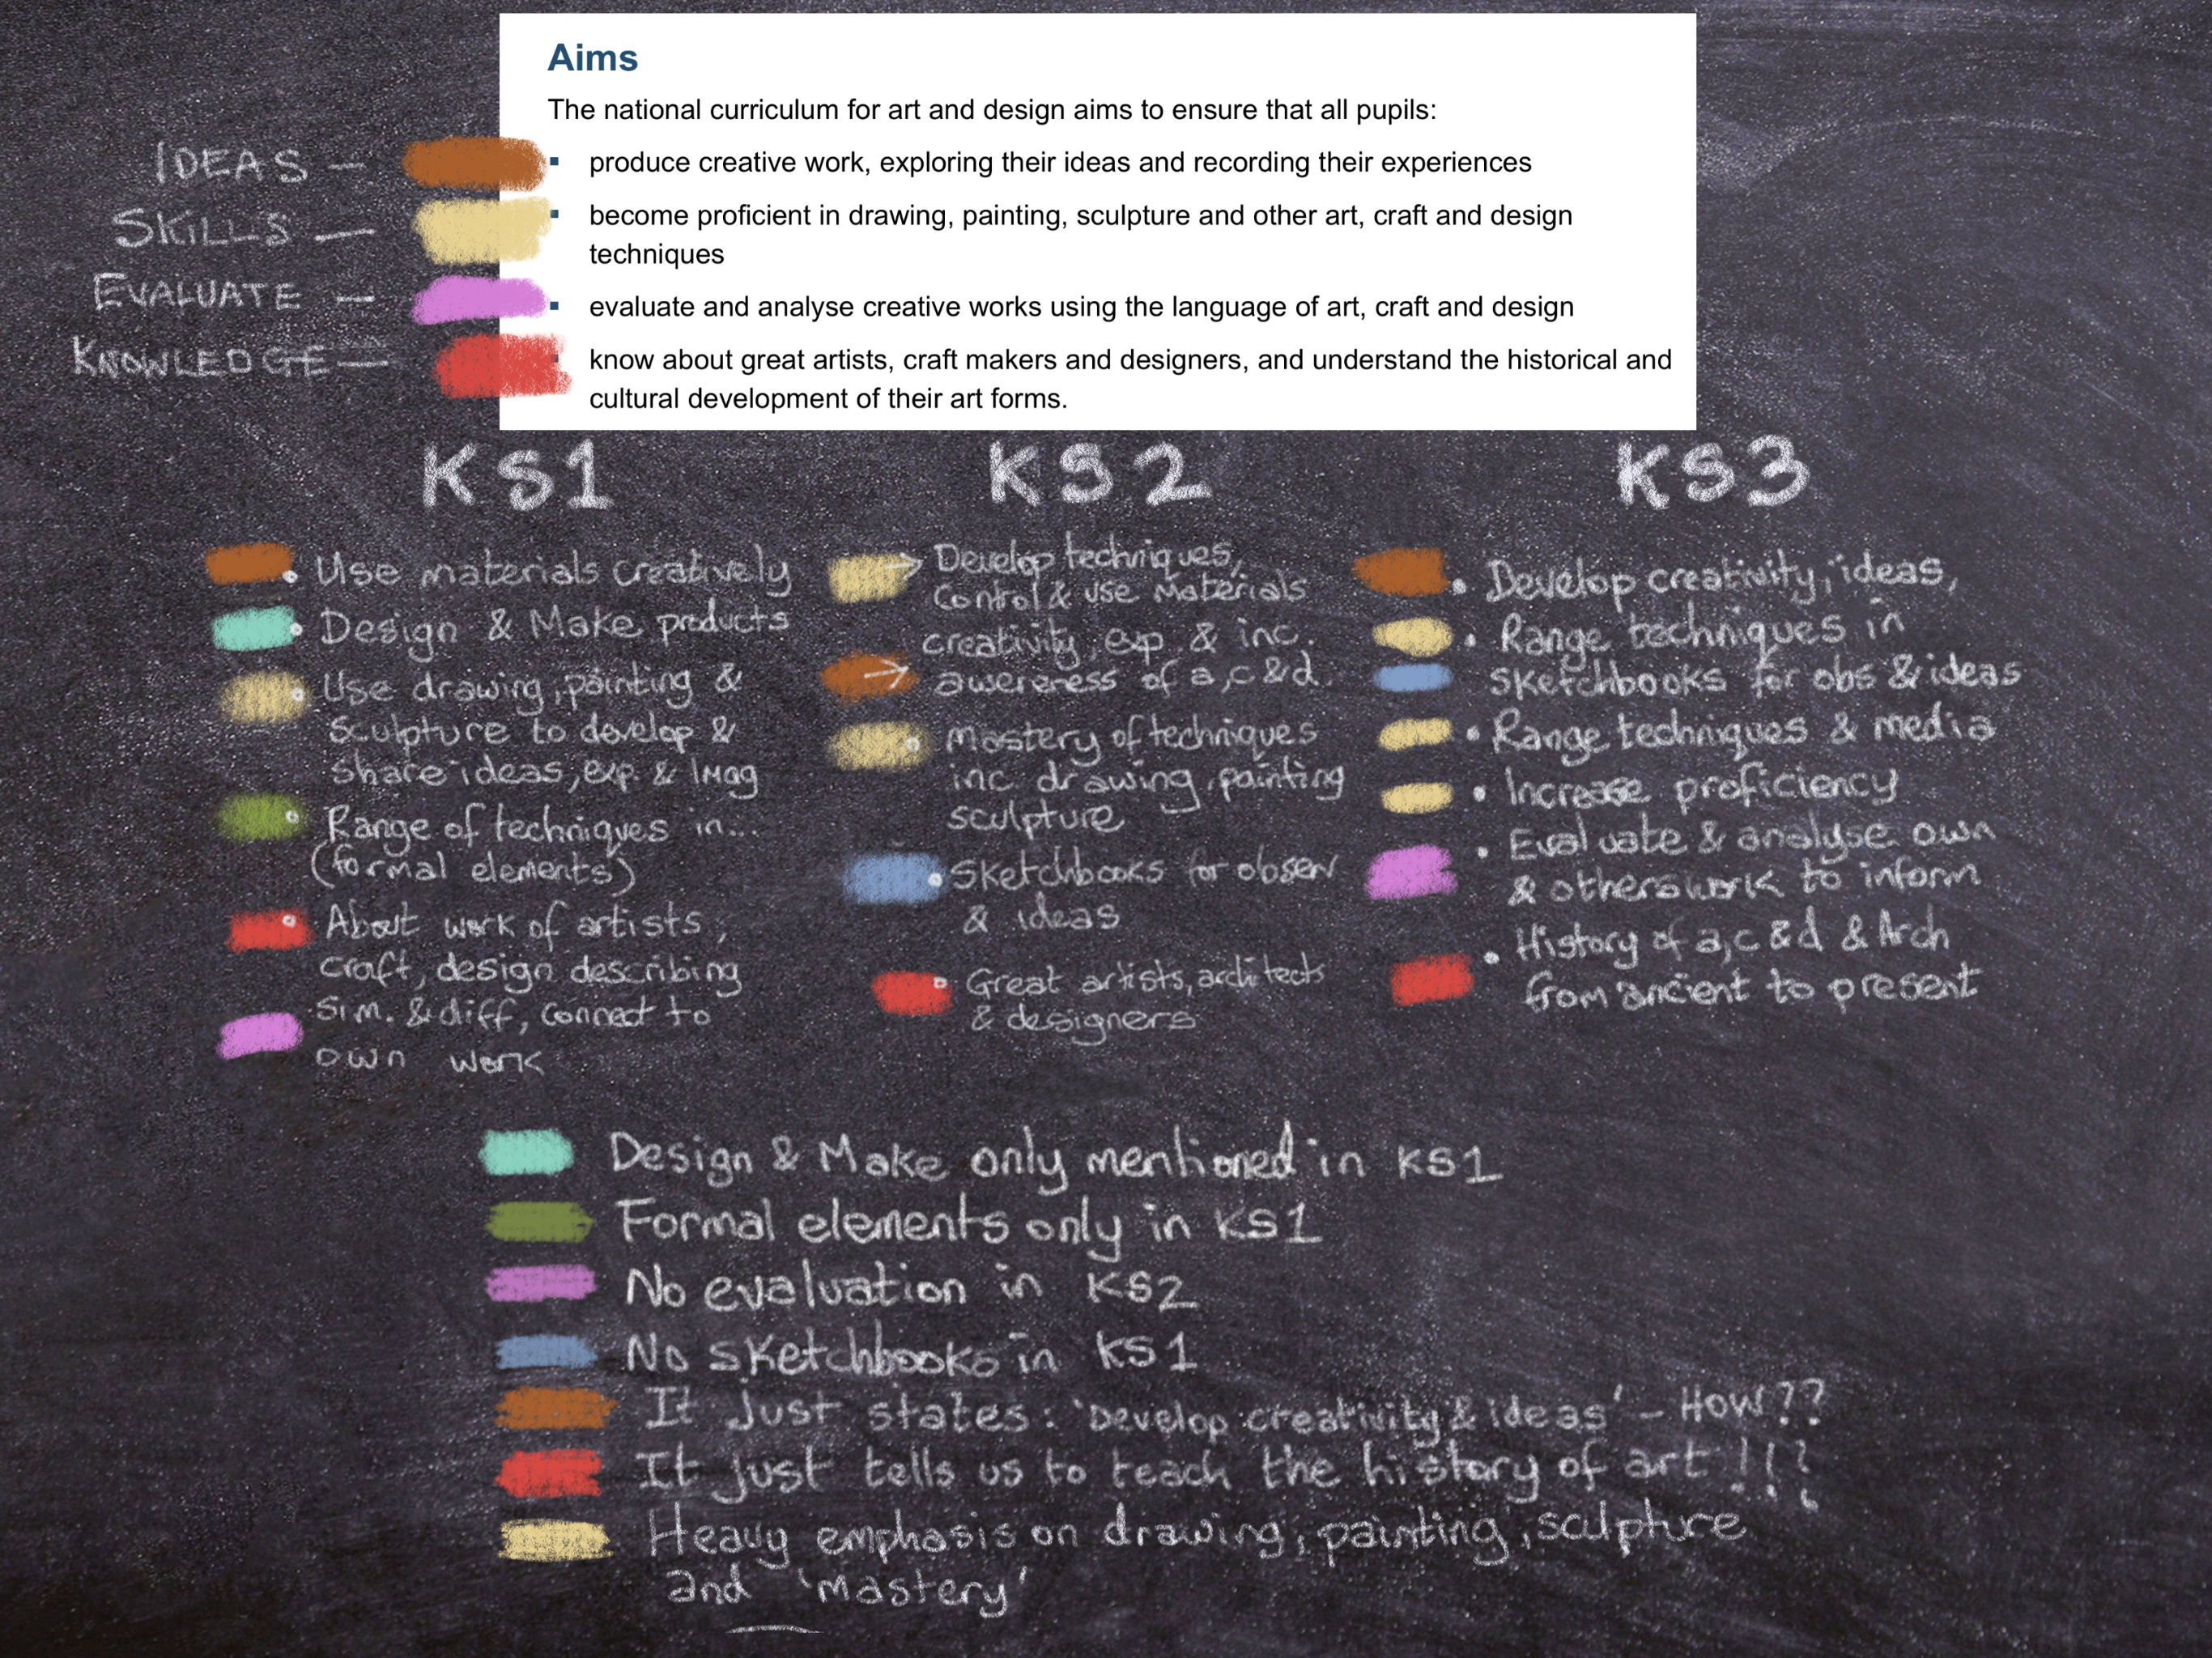 Aims
The national curriculum for art and design aims to ensure that all pupils:
IDEAS —
▪ produce creative work, exploring their ideas and recording their experiences
SKILLS —
▪ become proficient in drawing, painting, sculpture and other art, craft and design
techniques
EVALUATE —
▪ evaluate and analyse creative works using the language of art, craft and design
KNOWLEDGE —
▪ know about great artists, craft makers and designers, and understand the historical and
cultural development of their art forms.
KS1
• Use materials creatively
• Design & Make products
• Use drawing, painting &
sculpture to develop &
share ideas, exp. & Imag
• Range of techniques in...
(formal elements)
• About work of artists,
craft, design describing
sim. & diff, connect to
own work
KS2
→ Develop techniques,
control & use Materials
creativity, exp & inc.
→ awareness of a,c&d.
• Mastery of techniques
inc drawing, painting
sculpture
• Sketchbooks for observ
& ideas
• Great artists, architects
& designers
KS3
• Develop creativity, ideas,
• Range techniques in
sketchbooks for obs & ideas
• Range techniques & media
• Increase proficiency
• Evaluate & analyse own
& others work to inform
• History of a,c&d & Arch
from ancient to present
Design & Make only mentioned in KS1
Formal elements only in KS1
No evaluation in KS2
No sketchbooks in KS1
It just states: 'Develop creativity & ideas' – How??
It just tells us to teach the history of art !!?
Heavy emphasis on drawing, painting, sculpture
and 'mastery'